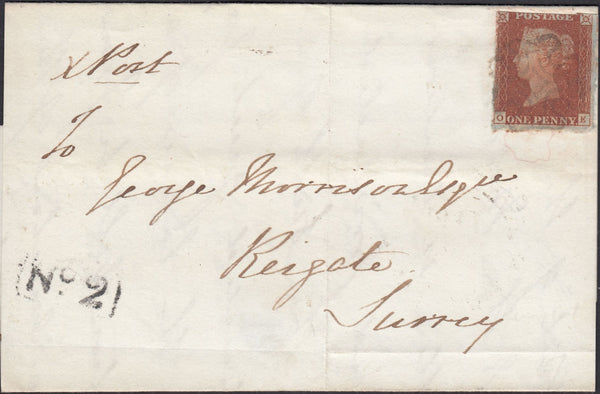 POSTAGE
O ONE PENNY. E
x Post
To
George Morrison Esqre
Reigate
Surrey
No 2